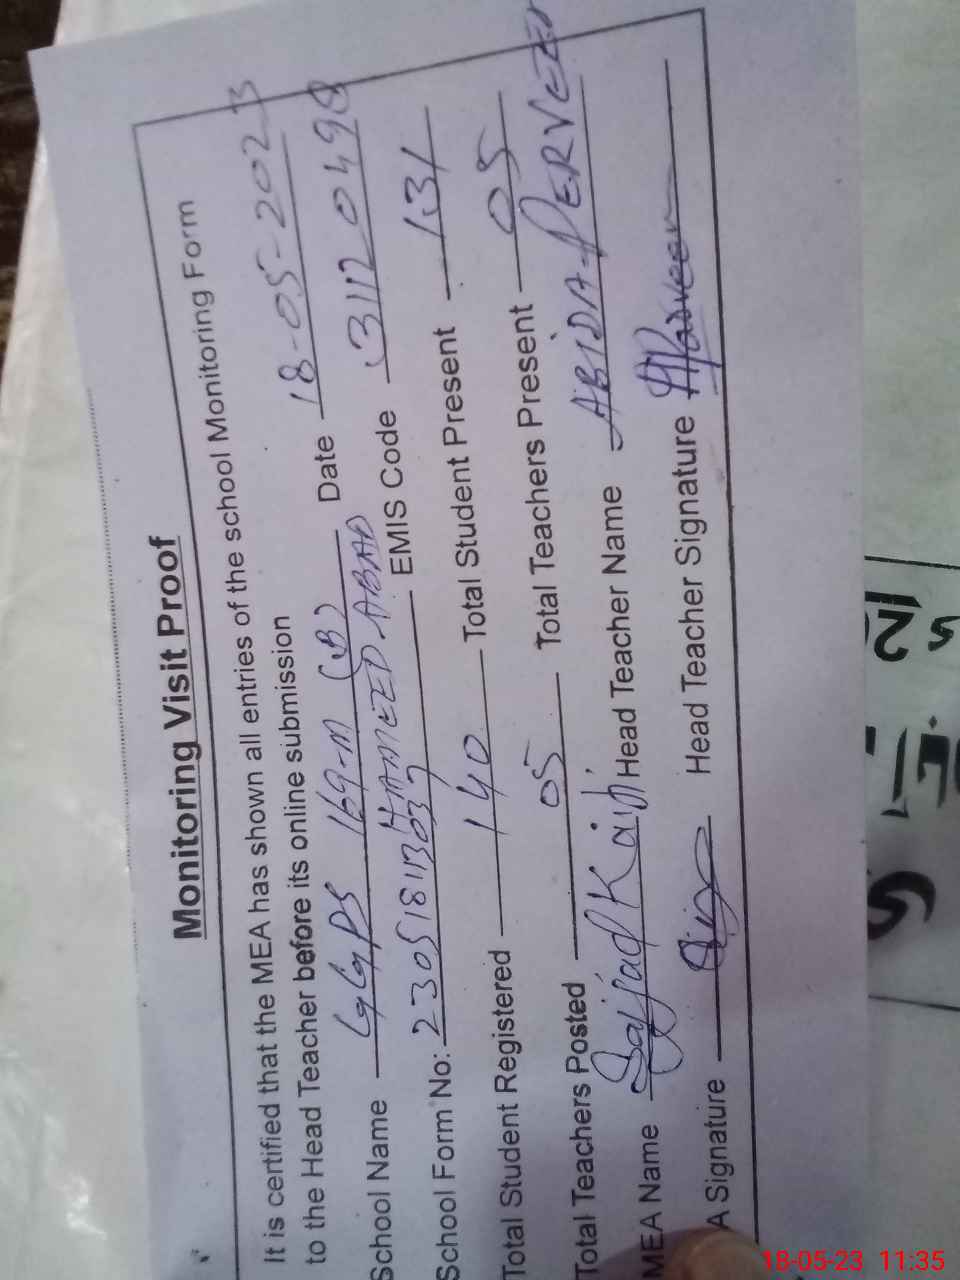 Monitoring Visit Proof
It is certified that the MEA has shown all entries of the school Monitoring Form
to the Head Teacher before its online submission
School Name GGPS 169-M (B) Date 18-05-2023
HAMEED ABAD
School Form No: 230518113039 EMIS Code 31120498
Total Student Registered 140 Total Student Present 131
Total Teachers Posted 05 Total Teachers Present 05
MEA Name Sajjad Kaih Head Teacher Name ABIDA PERVEEN
A Signature Head Teacher Signature APasveen
18-05-23 11:35